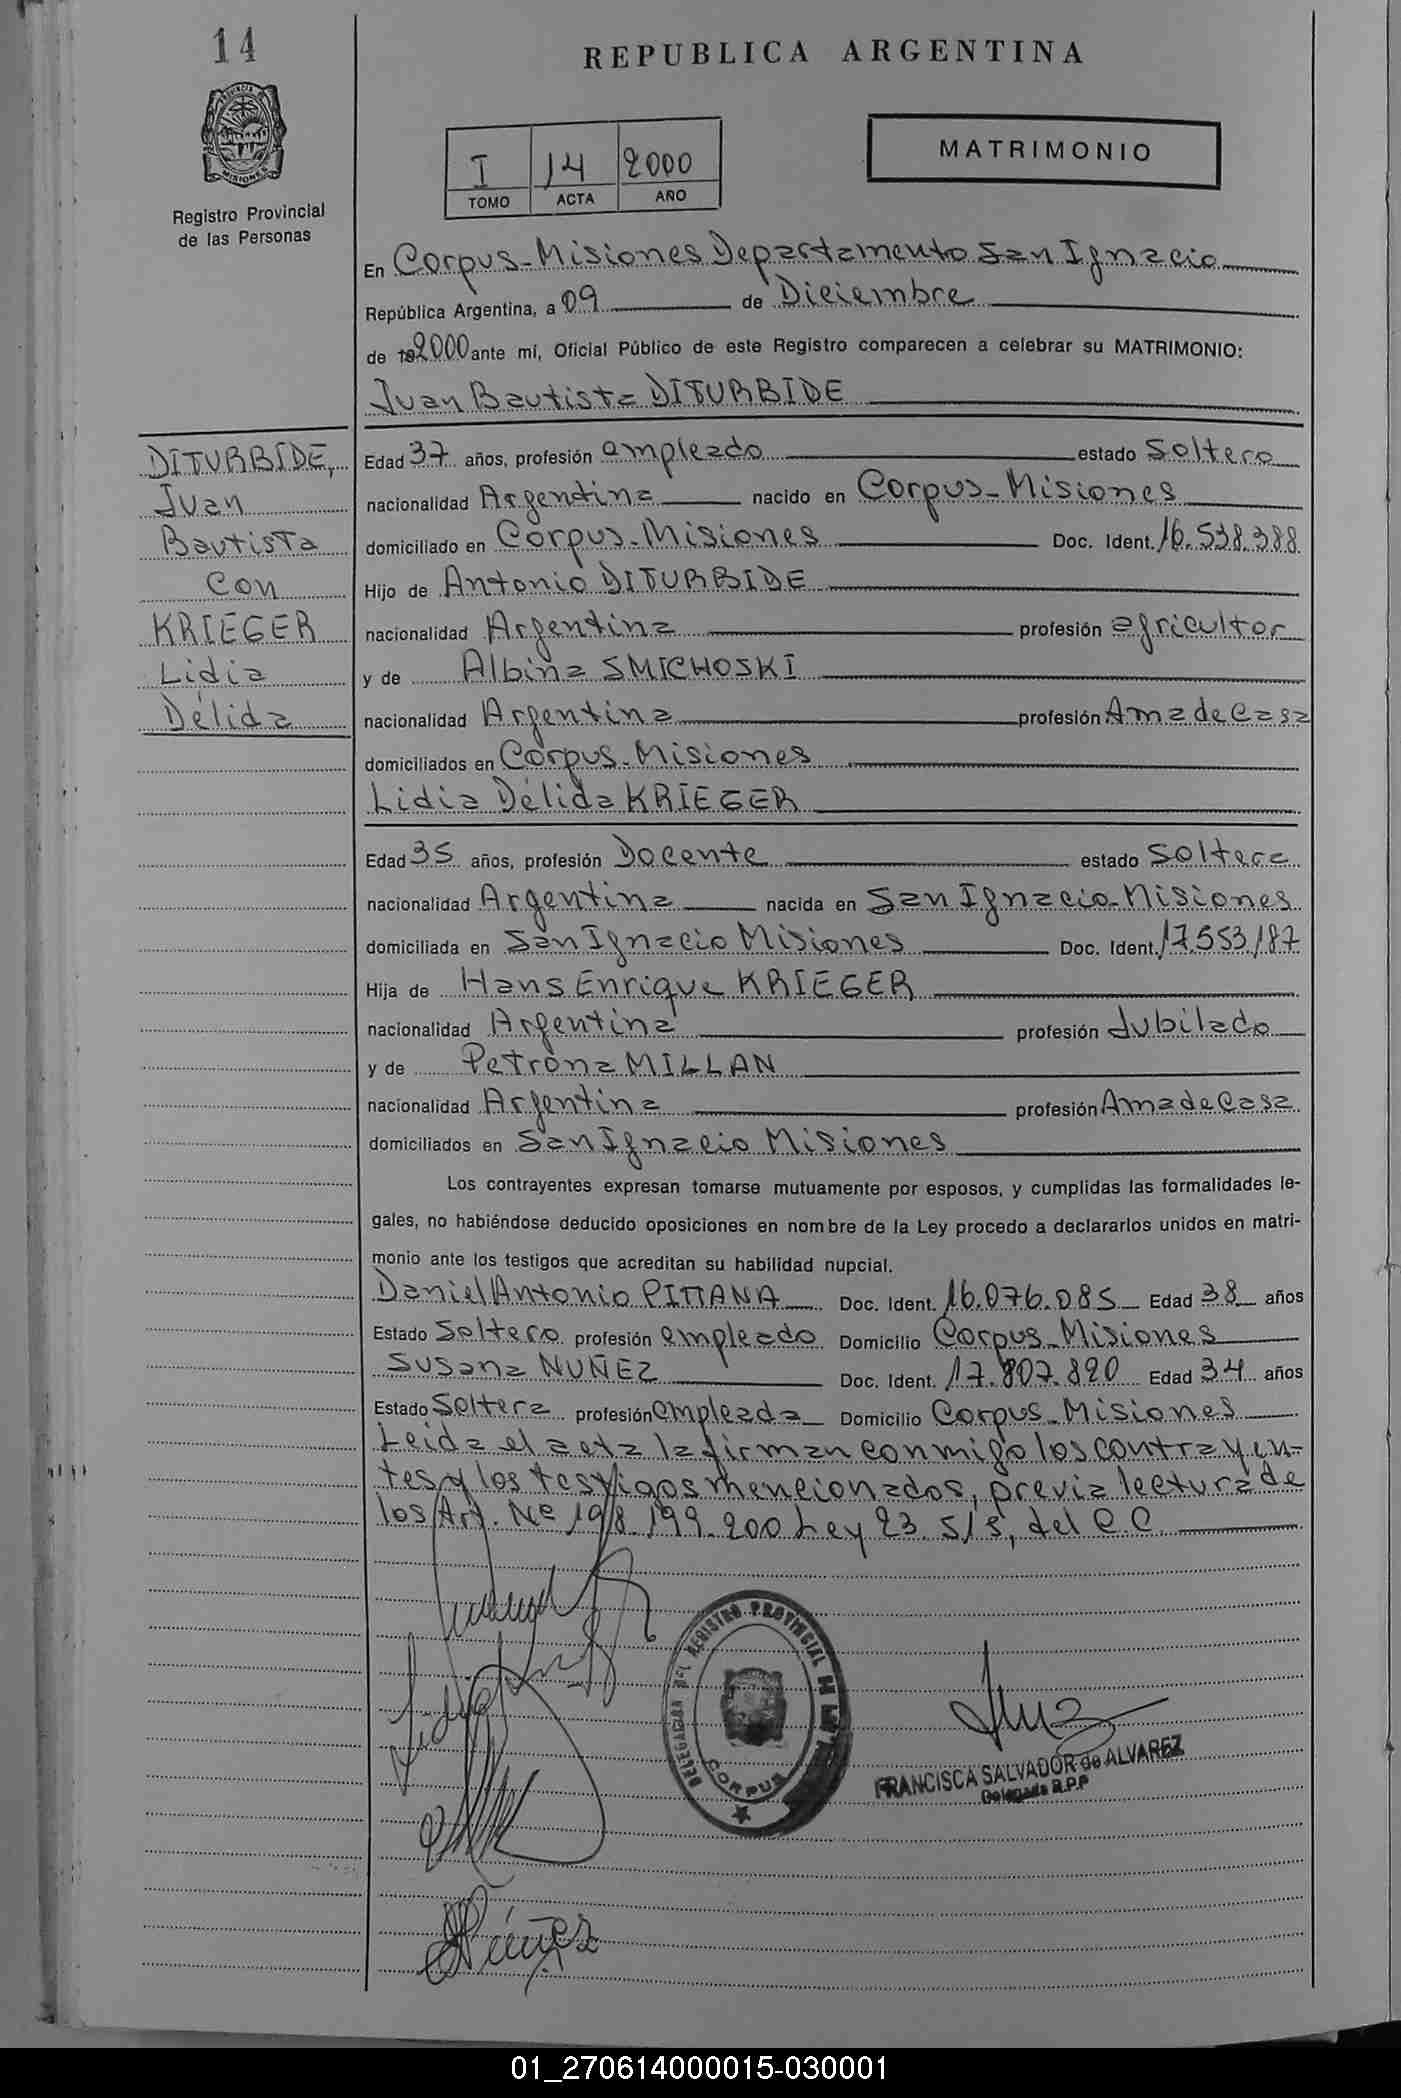 14
REPUBLICA ARGENTINA
MATRIMONIO
I 14 2000
TOMO ACTA AÑO
MISIONES
Registro Provincial
de las Personas
En Corpus-Misiones Departamento San Ignacio
República Argentina, a 09 de Diciembre
de 192000 ante mí, Oficial Público de este Registro comparecen a celebrar su MATRIMONIO:
Juan Bautista DITURBIDE
DITURBIDE,
Juan
Bautista
Con
KRIEGER
Lidia
Délida
Edad 37 años, profesión empleado estado Soltero
nacionalidad Argentina nacido en Corpus-Misiones
domiciliado en Corpus-Misiones Doc. Ident. 16.538.388
Hijo de Antonio DITURBIDE
nacionalidad Argentina profesión agricultor
y de Albina SMICHOSKI
nacionalidad Argentina profesión Ama de Casa
domiciliados en Corpus-Misiones
Lidia Délida KRIEGER
Edad 35 años, profesión Docente estado Soltera
nacionalidad Argentina nacida en San Ignacio-Misiones
domiciliada en San Ignacio Misiones Doc. Ident. 17.553.187
Hija de Hans Enrique KRIEGER
nacionalidad Argentina profesión Jubilado
y de Petrona MILLAN
nacionalidad Argentina profesión Ama de Casa
domiciliados en San Ignacio Misiones
Los contrayentes expresan tomarse mutuamente por esposos, y cumplidas las formalidades le-
gales, no habiéndose deducido oposiciones en nombre de la Ley procedo a declararlos unidos en matri-
monio ante los testigos que acreditan su habilidad nupcial.
Daniel Antonio PITTANA Doc. Ident. 16.076.085 Edad 38 años
Estado Soltero profesión empleado Domicilio Corpus-Misiones
Susana NUÑEZ Doc. Ident. 17.807.820 Edad 34 años
Estado Soltera profesión empleada Domicilio Corpus-Misiones
Leida el acta la firman conmigo los contrayen-
tes y los testigos mencionados, previa lectura de
los Art. Nº 198.199.200 Ley 23.515, del C.C.
DELEGACION DEL REGISTRO PROVINCIAL DE LAS
CORPUS
FRANCISCA SALVADOR de ALVAREZ
Delegada R.P.P
Lidia
Núñez
01_270614000015-030001